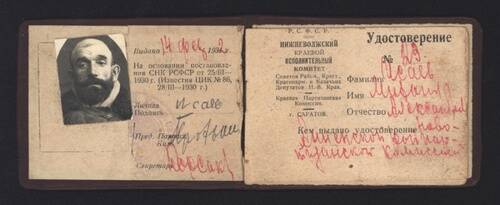 Выдана 14 фев 1932
На основании постановле-
ния СНК РСФСР от 25/III—
1930 г. (Известия ЦИК № 86,
28/III—1930 г.)
Личная
Подпись Исаев
Пред.
Секретарь
Р. С. Ф. С. Р.
НИЖНЕВОЛЖСКИЙ
КРАЕВОЙ
ИСПОЛНИТЕЛЬНЫЙ
КОМИТЕТ
Советов Рабоч., Крест.,
Красноарм. и Казачьих
Депутатов Н.-В. Края.
Краевая Партизанская
Комиссия.
г. САРАТОВ.
Удостоверение
№
Фамилия Исаев
Имя
Отчество
Кем выдано удостоверение
Комиссией